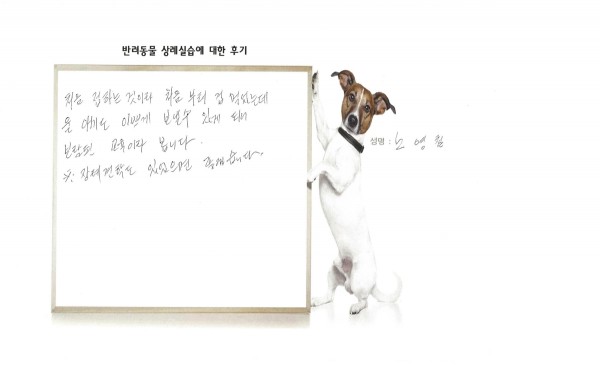 반려동물 상례실습에 대한 후기
처음 접하는 것이라 처음 부터 겁 먹었는데
아이도 이쁘게 보낼수 있게 되어
보람된 교육이라 봅니다.
※: 장례견학도 있었으면 좋겠습니다.
성명 : 노영